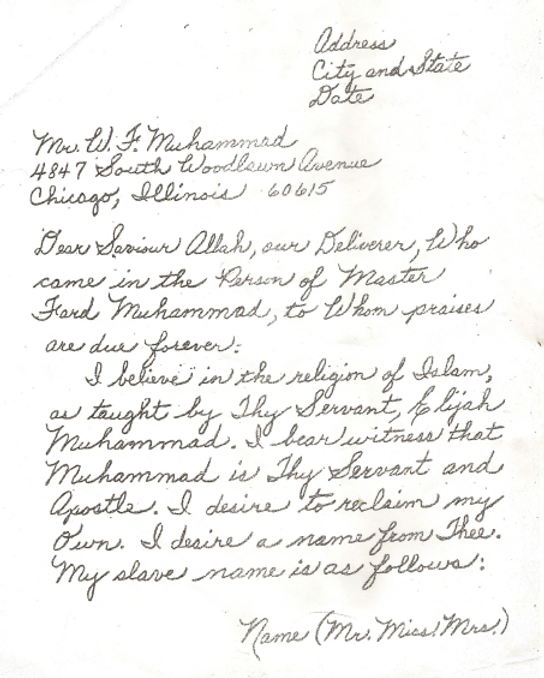 Address
City and State
Date
Mr. W. F. Muhammad
4847 South Woodlawn Avenue
Chicago, Illinois 60615
Dear Saviour Allah, our Deliverer, Who
came in the Person of Master
Fard Muhammad, to Whom praises
are due forever:
I believe in the religion of Islam,
as taught by Thy Servant, Elijah
Muhammad. I bear witness that
Muhammad is Thy Servant and
Apostle. I desire to reclaim my
Own. I desire a name from Thee.
My slave name is as follows:
Name (Mr. Miss. Mrs.)